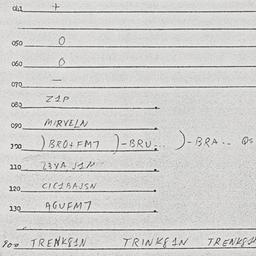 041 +
050 0
060 0
070 —
080 Z1P
090 MIRVELN
100 )BRO+FM7 )-BRU... )-BRA..
110
120 CIC1BAJSN
130 AGUFM7
900 TRENKE1N TRINKE1N TRENKE